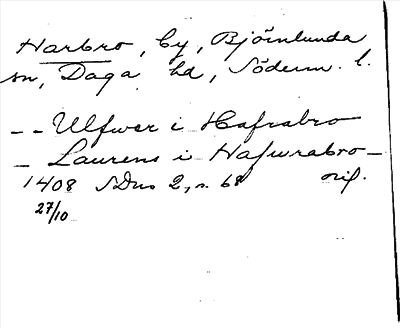 Harbro, by, Björnlunda
sn, Daga hd, Söderm. l.
-- Ulfwer i Hafrabro
- Laurens i Hafwrabro -
1408 SDns 2, s. 68 orig.
27/10